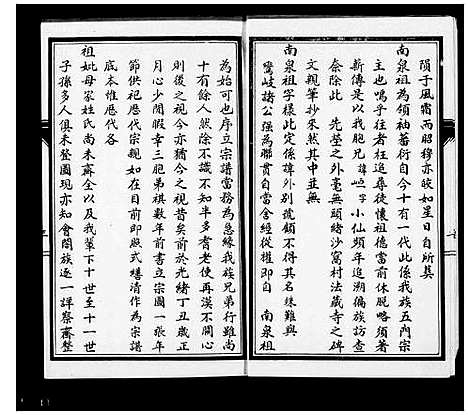 隕于風霜而昭穆亦皎如星日自所奠
南泉祖為領袖蕃衍自今十有一代此係我族五門宗
主也嗚乎往者枉追尋後懷祖德當前休脫略須著
薪傳是以我胞兄諱 字小仙頻年追溯偏族訪查
奈除此　先塋之外毫無頭緒沙窩村法藏寺之碑
文親筆抄來然其中並無
南泉祖字樣此定係諱外別號頗不得其名殊難與
鸞岐諸公強為聯貫自當舍經從權即自　南泉祖
為始可也序立宗譜當務為急緣我族兄弟行雖尚
十有餘人然除不識不知半多耆老使再漠不關心
則後之視今亦猶今之視昔矣前於光緒丁丑歲正
月心少閒暇幸三胞弟祺數年前書立宗圖一張年
節供祀歷代宗親如在目前即照式繕清作為宗譜
底本惟歷代各
祖妣母家姓氏尚未齊全以及我輩下十世至十一世
子孫多人俱未登圖現亦知會閤族逐一詳察齊整